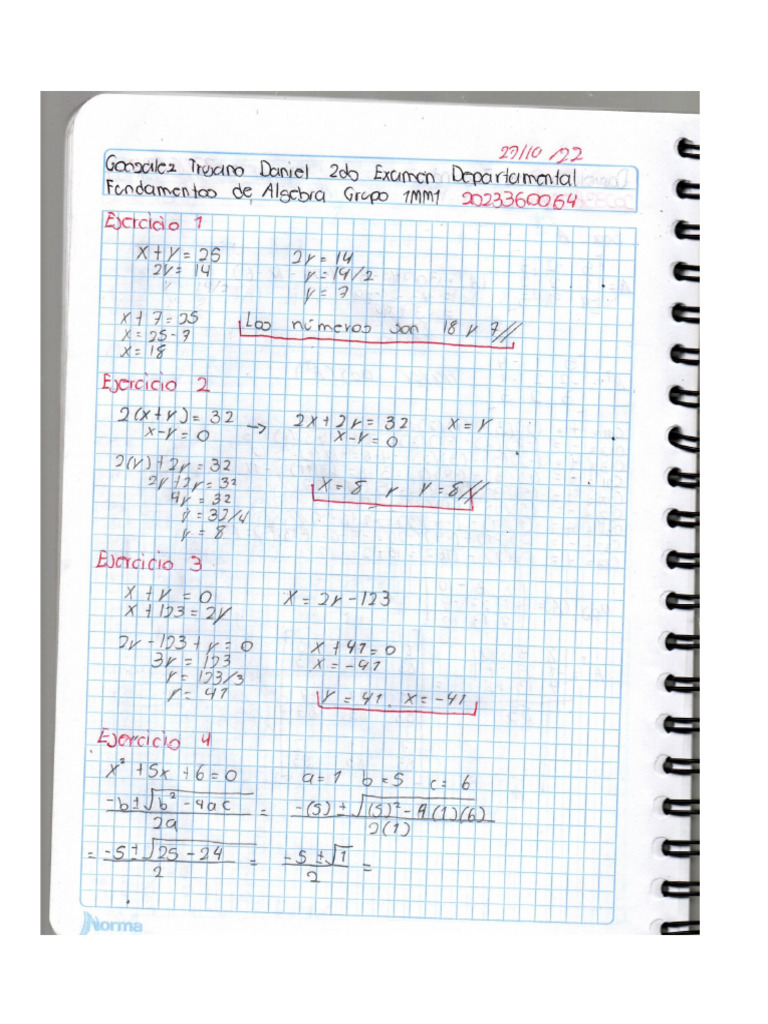 27/10/22
Gonzalez Troxano Daniel 2do Examen Departamental
Fundamentos de Algebra Grupo 1MM1 2023360064
Ejercicio 1
x + y = 25 2y = 14
2y = 14 y = 14/2
y = 7
x + 7 = 25 Los números son 18 y 7//
x = 25 - 7
x = 18
Ejercicio 2
2(x + y) = 32 → 2x + 2y = 32 x = y
x - y = 0 x - y = 0
2(y) + 2y = 32
2y + 2y = 32 x = 8 y y = 8//
4y = 32
y = 32/4
y = 8
Ejercicio 3
x + y = 0 x = 2y - 123
x + 123 = 2y
2y - 123 + y = 0 x + 41 = 0
3y = 123 x = -41
y = 123/3
y = 41 y = 41. x = -41
Ejercicio 4
x² + 5x + 6 = 0 a = 1 b = 5 c = 6
-b ± √b² - 4ac = -(5) ± √(5)² - 4(1)(6)
2a 2(1)
= -5 ± √25 - 24 = -5 ± √1 =
2 2
Norma